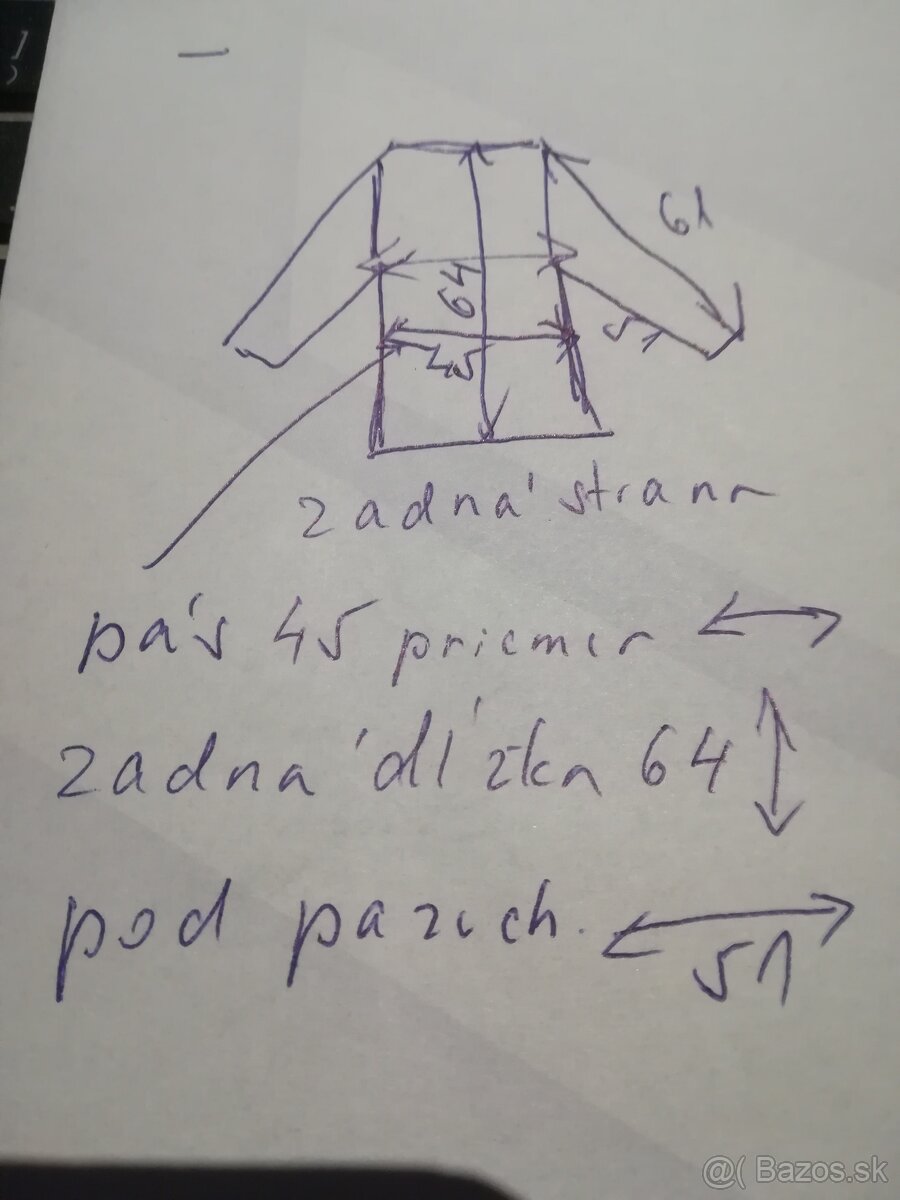 61
64
51
45
zadná strana
pás 45 priemer
zadná dĺžka 64
pod pazuch.
51
@( Bazos.sk